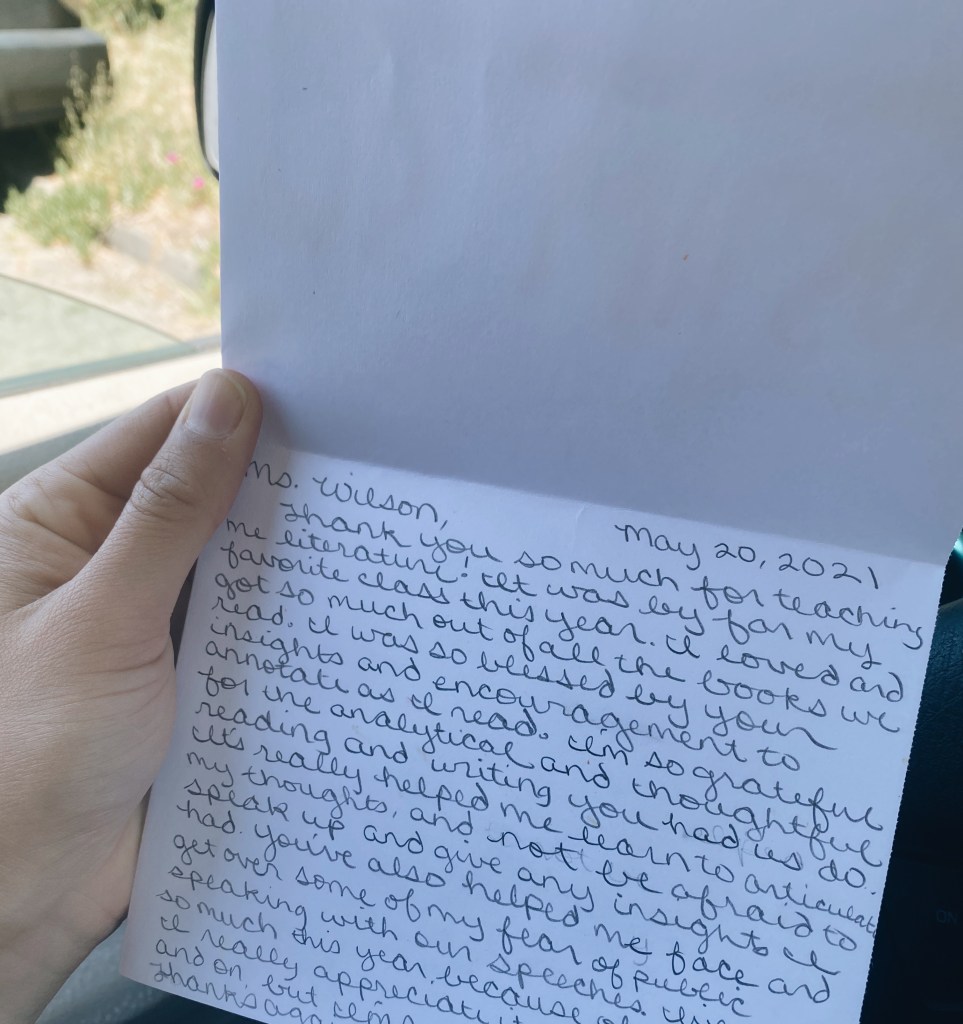 Ms. Wilson,
May 20, 2021
Thank you so much for teaching
me literature. It was by far my
favorite class this year. I loved and
got so much out of all the books we
read. I was so blessed by your
insights and encouragement to
annotate as I read. I'm so grateful
for the analytical and thoughtful
reading and writing you had us do.
It's really helped me learn to articulate
my thoughts, and not be afraid to
speak up and give any insights I
had. You've also helped me face and
get over some of my fear of public
speaking with our speeches.
so much this year because of
I really appreciate it
and on, but
Thanks again
ON